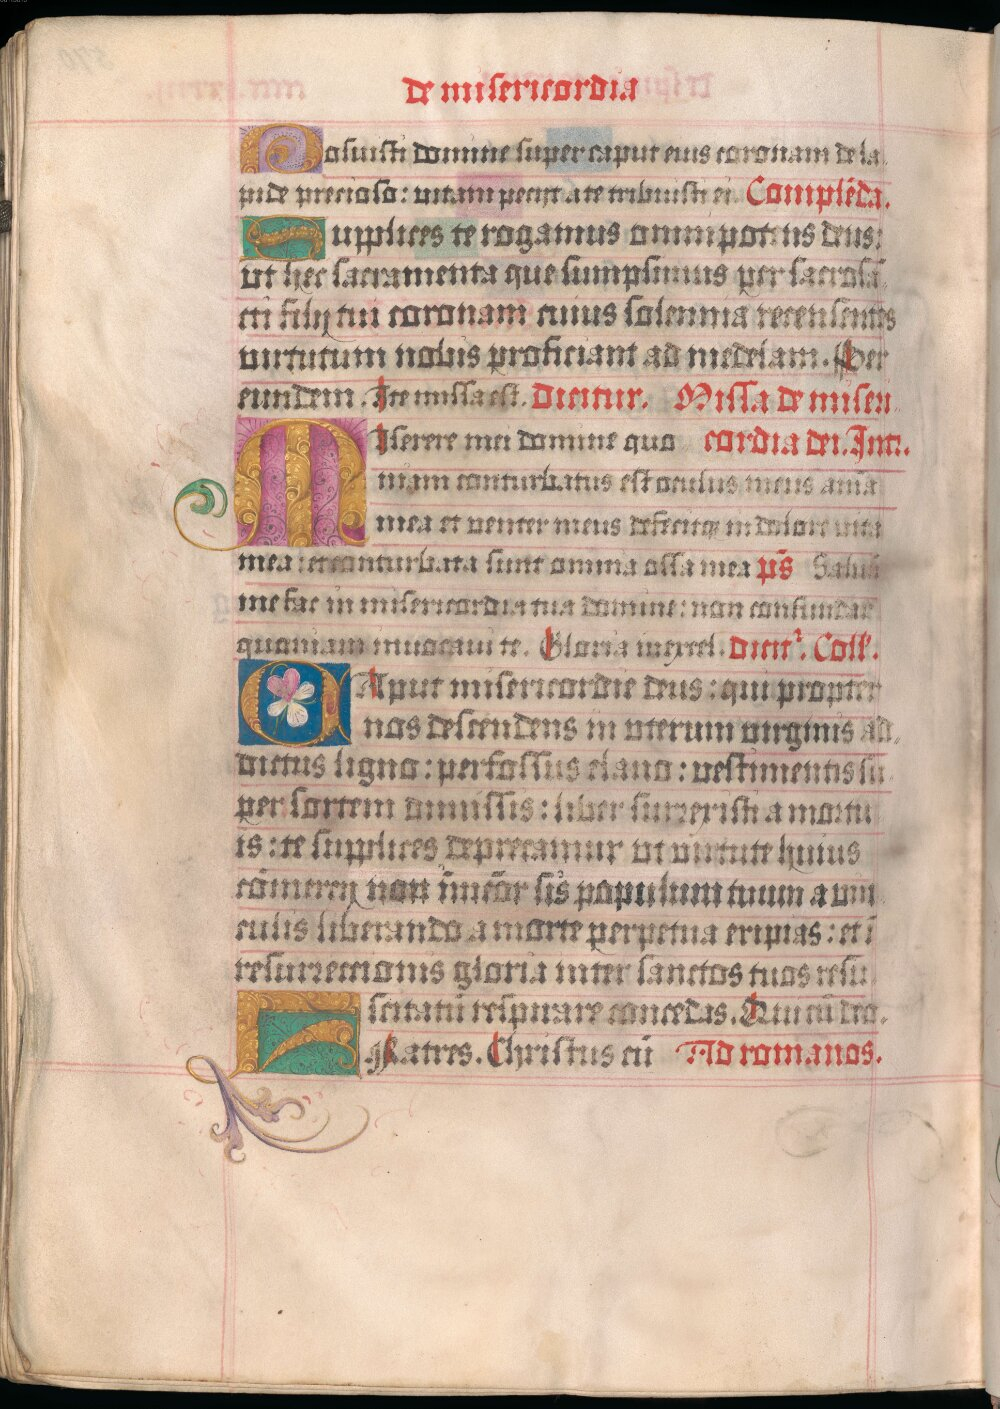 de misericordia
Posuisti domine super caput eius coronam de la
pide precioso: vitam peciit a te tribuisti ei Complēda.
Supplices te rogamus omnipotens deus:
ut hec sacramenta que sumpsimus per sacrosā
cti filij tui coronam cuius solennia recensentes
virtutum nobis proficiant ad medelam. Per
eundem. Ite missa est. Dicitur. Missa de miseri
Miserere mei domine quo cordia dei. Int.
niam conturbatus est oculus meus aīa
mea et venter meus defecit in dolore vita
mea: et conturbata sunt omnia ossa mea ps̄ Saluū
me fac in misericordia tua domine: non confundar
quoniam inuocaui te. Gloria in excel. dicit᷒. Coll᷒.
CAput misericordie deus: qui propter
nos descendens in uterum virginis ad
dictus ligno: perfossus clauo: vestimentis su
per sortem diuissis: liber surrexisti a mortu
is: te supplices deprecamur ut virtute huius
cōmercij sis populum tuum a vin
culis liberando a morte perpetua eripias: et ī
resurrectionis gloria inter sanctos tuos resu
scitatū respirare concedas. Qui cū deo.
Fratres. Christus cū Ad romanos.